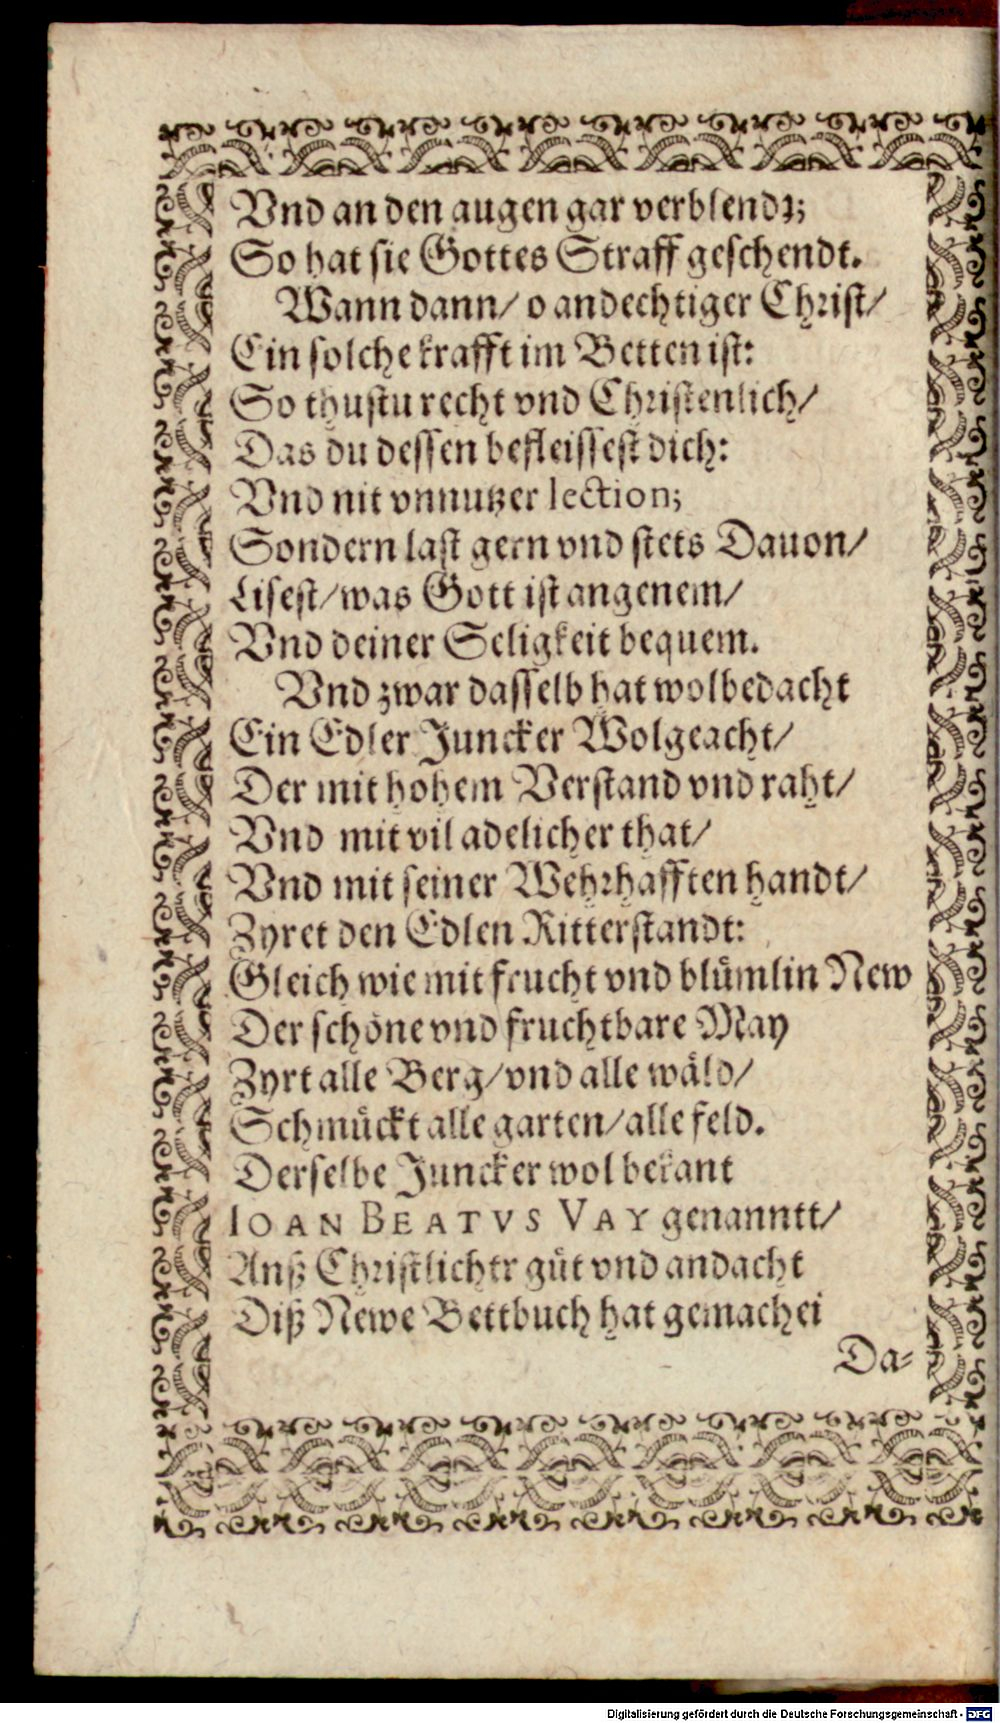 Vnd an den augen gar verblendt;
So hat sie Gottes Straff geschendt.
Wann dann/ o andechtiger Christ/
Ein solche krafft im Betten ist:
So thustu recht vnd Christenlich/
Das du dessen befleissest dich:
Vnd nit vnnutzer lection;
Sondern last gern vnd stets Dauon/
Lisest/ was Gott ist angenem/
Vnd deiner Seligkeit bequem.
Vnd zwar dasselb hat wolbedacht
Ein Edler Juncker Wolgeacht/
Der mit hohem Verstand vnd raht/
Vnd mit vil adelicher that/
Vnd mit seiner Wehrhafften handt/
Zyret den Edlen Ritterstandt:
Gleich wie mit frucht vnd blůmlin New
Der schöne vnd fruchtbare May
Zyrt alle Berg/ vnd alle wäld/
Schmůckt alle garten/ alle feld.
Derselbe Juncker wol bekant
IOAN BEATVS VAY genanntt/
Auß Christlichtr gůt vnd andacht
Diß Newe Bettbuch hat gemachei
Da-
Digitalisierung gefördert durch die Deutsche Forschungsgemeinschaft - DFG